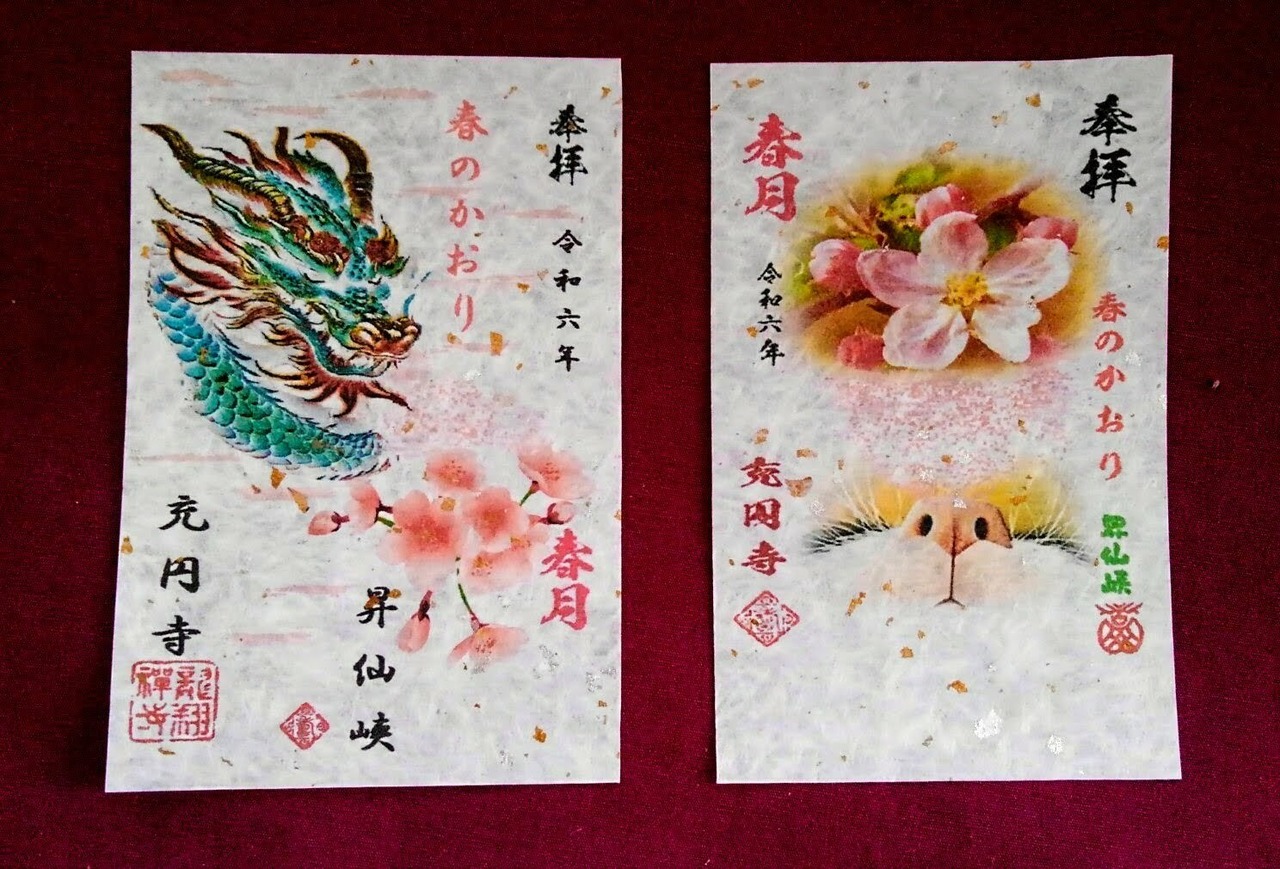 奉拝
令和六年
春のかおり
春月
昇仙峡
充円寺
奉拝
春のかおり
昇仙峡
春月
令和六年
充円寺